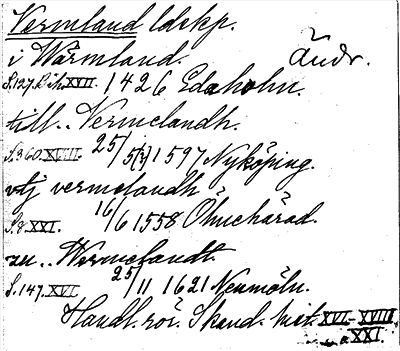 Vermland ldskp.
i Wärmland. Ändr.
S.127. Bih. XVII. 1426 Edaholm.
till.. Vermelandh.
S.360. XVIII. 25/5(?) 1597 Nyköping.
vtj vermelandh
S.8. XXI. 16/6 1558 Öhnehärad.
zu.. Wermelandt.
S.147. XVI. 25/11 1621 Neumöln.
Handl. rör. Skand. hist. XVI-XVIII,
XXI.